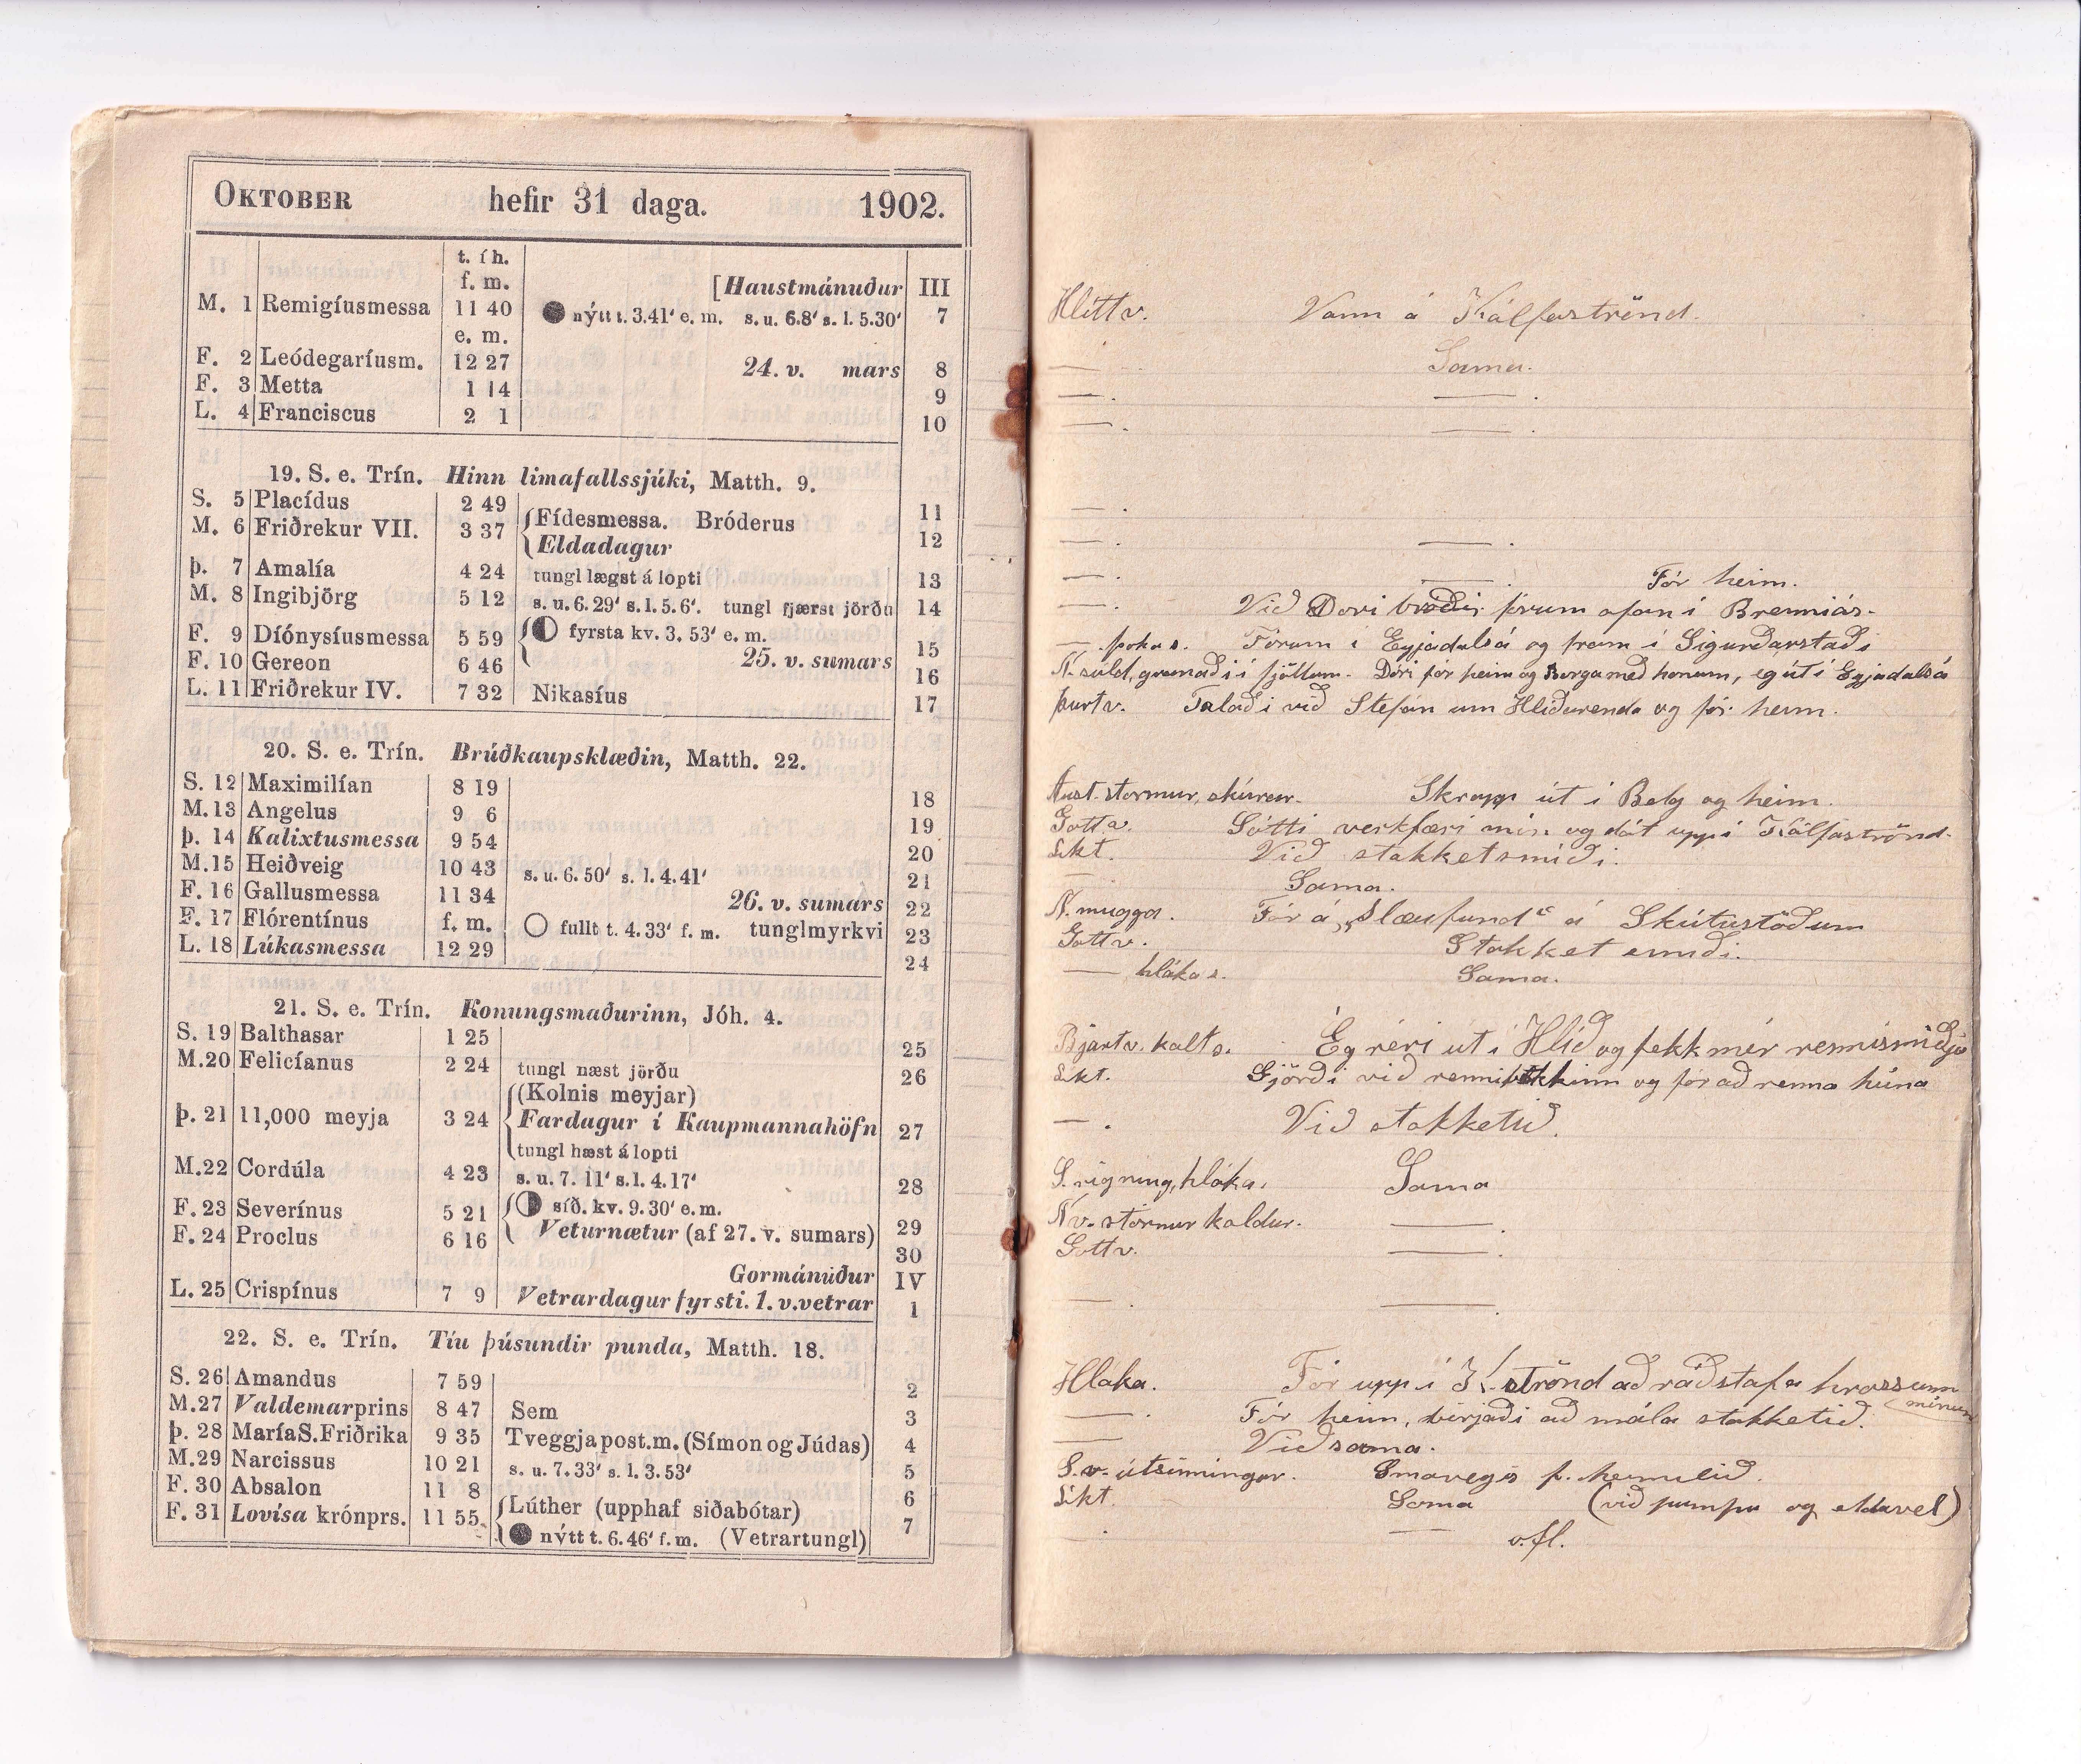 OKTOBER hefir 31 daga. 1902.
t. í h.
f. m. [Haustmánuður III
M. 1 Remigíusmessa 11 40 nýtt t. 3.41' e. m. s. u. 6.8' s. l. 5.30' 7
e. m.
F. 2 Leódegaríusm. 12 27 24. v. mars 8
F. 3 Metta 1 14 9
L. 4 Franciscus 2 1 10
19. S. e. Trín. Hinn limafallssjúki, Matth. 9.
S. 5 Placídus 2 49 11
M. 6 Friðrekur VII. 3 37 Fídesmessa. Bróderus 12
Eldadagur
þ. 7 Amalía 4 24 tungl lægst á lopti 13
M. 8 Ingibjörg 5 12 s. u. 6.29' s. l. 5.6'. tungl fjærst jörðu 14
F. 9 Díónysíusmessa 5 59 fyrsta kv. 3. 53' e. m. 15
F. 10 Gereon 6 46 25. v. sumars 16
L. 11 Friðrekur IV. 7 32 Nikasíus 17
20. S. e. Trín. Brúðkaupsklæðin, Matth. 22.
S. 12 Maximilían 8 19 18
M. 13 Angelus 9 6 19
þ. 14 Kalixtusmessa 9 54 20
M. 15 Heiðveig 10 43 s. u. 6.50' s. l. 4.41' 21
F. 16 Gallusmessa 11 34 26. v. sumars 22
F. 17 Flórentínus f. m. fullt t. 4.33' f. m. tunglmyrkvi 23
L. 18 Lúkasmessa 12 29 24
21. S. e. Trín. Konungsmaðurinn, Jóh. 4.
S. 19 Balthasar 1 25 25
M. 20 Felicíanus 2 24 tungl næst jörðu 26
(Kolnis meyjar)
þ. 21 11,000 meyja 3 24 Fardagur í Kaupmannahöfn 27
tungl hæst á lopti
M. 22 Cordúla 4 23 s. u. 7. 11' s. l. 4.17' 28
F. 23 Severínus 5 21 síð. kv. 9.30' e. m. 29
F. 24 Proclus 6 16 Veturnætur (af 27. v. sumars) 30
Gormánuður IV
L. 25 Crispínus 7 9 Vetrardagur fyrsti. 1. v. vetrar 1
22. S. e. Trín. Tíu þúsundir punda, Matth. 18.
S. 26 Amandus 7 59 2
M. 27 Valdemar prins 8 47 Sem 3
þ. 28 María S. Friðrika 9 35 Tveggjapost.m. (Símon og Júdas) 4
M. 29 Narcissus 10 21 s. u. 7.33' s. l. 3.53' 5
F. 30 Absalon 11 8 6
F. 31 Lovísa krónprs. 11 55 Lúther (upphaf siðabótar) 7
nýtt t. 6.46' f. m. (Vetrartungl)
Hlítt v. Vann á Kálfaströnd.
— Sama.
—. —.
—. —.
—.
—. —.
—. —. Fór heim.
—. Við Dóri bróðir fórum ofan í Brenniás.
— þoka s. Fórum í Eyjadalsá og fram í Sigurðarstaði
N. súld, gránaði í fjöllum. Dóri fór heim og Borga með honum, eg út í Eyjadalsá
þurt v. Talaði við Stefán um Hlíðarenda og fór heim.
Aust. stormur, skúrar. Skrapp út í Belg og heim.
Gott v. Sótti verkfæri mín og dót uppí Kálfaströnd.
Líkt. Við stakketsmíði.
— Sama.
N. mugga. Fór á „Slæufund“ á Skútustöðum
Gott v. Stakket smíði.
— hláka s. Sama.
Bjart v. kalt s. Ég réri út í Hlíð og fekk mér rennismiðju
Líkt. Gjörði við rennibekkinn og fór að renna húna
—. Við stakketið.
S. rigning, hláka. Sama
N v. stormur kaldur. —.
Gott v. —.
—. —.
Hláka. Fór upp í K.strönd að ráðstafa hrossunum mínum
—. Fór heim, birjaði að mála stakketið.
— Við sama.
S. v. útsinningar. Smávegis f. heimilið.
Líkt. Sama (við pumpu og eldavel)
. — o.fl.